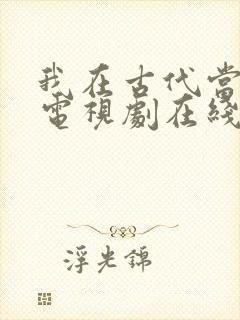 我在古代當
電視劇在綫
浮光錦